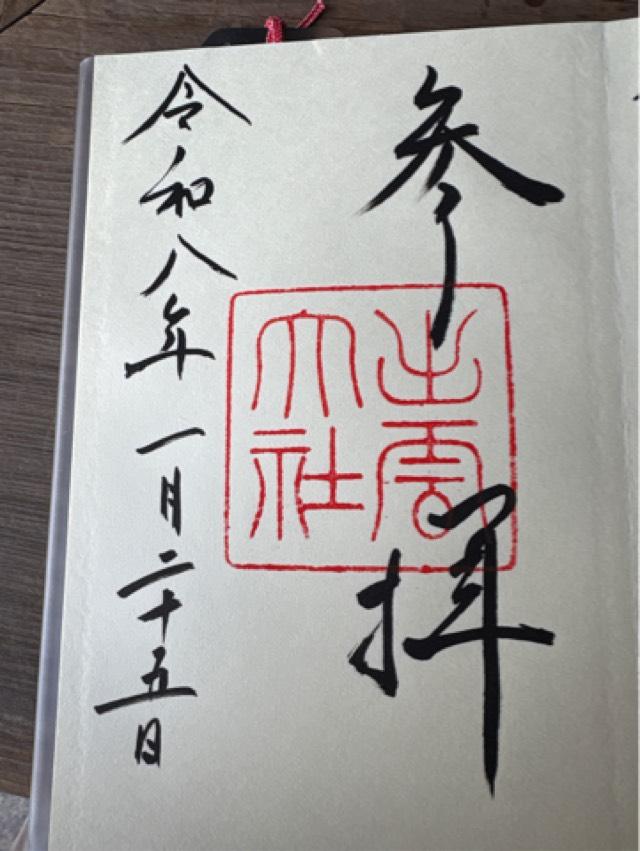 参拝
出雲
大社
令和八年一月二十五日